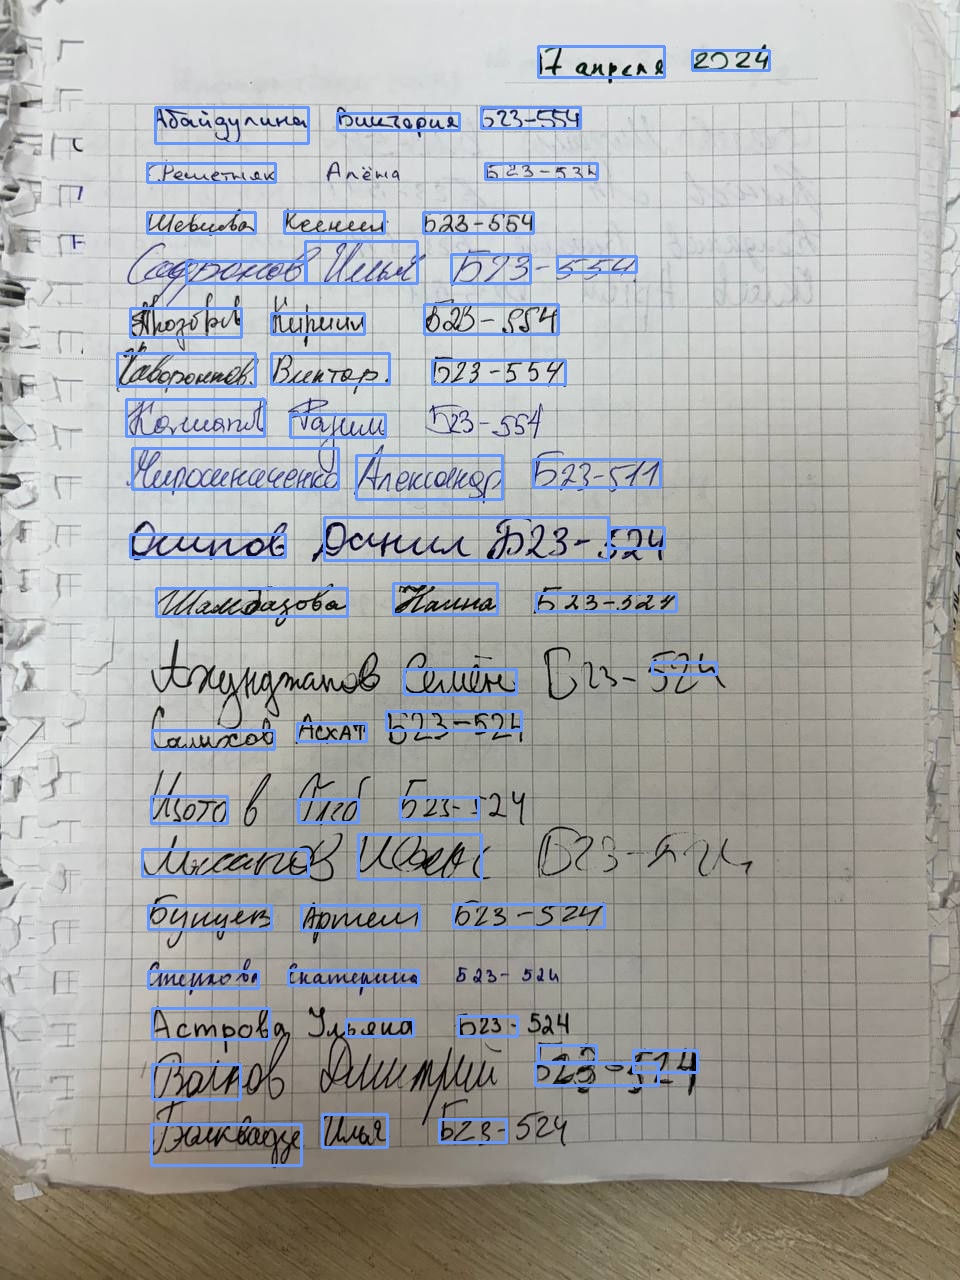 17 апреля 2024
Абайдулина Виктория Б23-554
Решетняк Алёна Б23-534
Шевцова Ксения Б23-554
Сафронов Илья Б23-554
Кирилл Б23-554
Каворонков. Виктор. Б23-554
Разим Б23-554
Мирошниченко Александр Б23-511
Осипов Данил Б23-524
Шамбазова Наина Б23-524
Ахунджанов Семён Б23-524
Салихов Асхат Б23-524
Изотов Глеб Б23-524
Б23-524
Бунцев Артем Б23-524
Стеркова Екатерина Б23-524
Астрова Ульяна Б23-524
Войнов Дмитрий Б23-524
Бжиквадзе Илья Б23-524